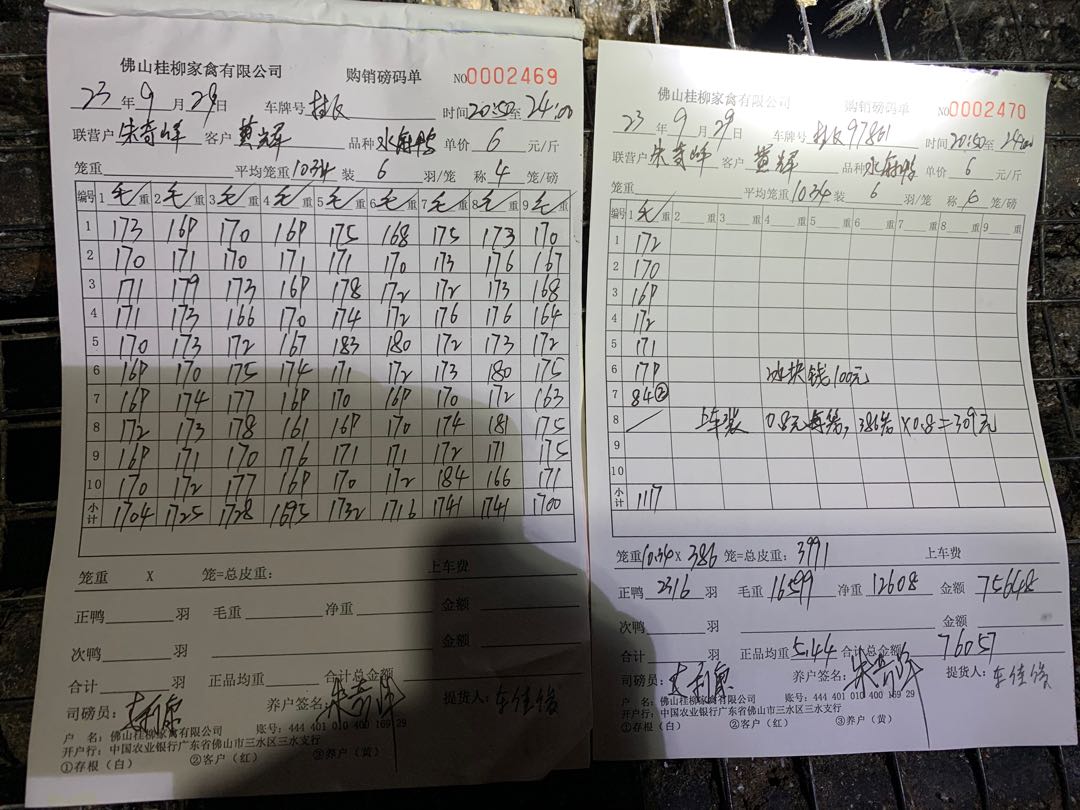 佛山桂柳家禽有限公司 购销磅码单 NO0002469
23年9月29日 车牌号 桂 时间20:50至24:00
联营户 朱奇峰 客户 黄辉 品种 水麻鸭 单价 6 元/斤
笼重 平均笼重10.34 装 6 羽/笼 称 4 笼/磅
编号 1毛/重 2毛/重 3毛/重 4毛/重 5毛/重 6毛/重 7毛/重 8毛/重 9毛/重
1 173 169 170 169 175 168 175 173 170
2 170 171 170 171 171 170 173 176 167
3 171 179 173 169 178 172 172 173 168
4 171 173 166 170 174 172 176 176 164
5 170 173 172 167 183 180 172 173 172
6 169 170 175 174 171 172 173 180 175
7 169 174 177 169 170 169 170 172 163
8 172 173 178 161 169 170 174 181 175
9 169 171 170 176 171 171 172 171 175
10 170 172 177 169 170 172 184 166 171
小计 1704 1725 1728 1695 1732 1716 1741 1741 1700
笼重 X 笼=总皮重: 上车费
正鸭 羽 毛重 净重 金额
次鸭 羽 金额
合计 羽 正品均重 合计总金额
司磅员: 养户签名: 朱奇峰 提货人: 车佳俊
户 名: 佛山桂柳家禽有限公司 账号: 444 401 010 400 169 29
开户行: 中国农业银行广东省佛山市三水区三水支行
①存根(白) ②客户(红) ③养户(黄)
佛山桂柳家禽有限公司 购销磅码单 NO0002470
23年9月29日 车牌号 桂 时间20:50至24:00
联营户 朱奇峰 客户 黄辉 品种 水麻鸭 单价 6 元/斤
笼重 平均笼重10.34 装 6 羽/笼 称 6 笼/磅
编号 1毛/重 2 重 3 重 4 重 5 重 6 重 7 重 8 重 9 重
1 172
2 170
3 169
4 172
5 171
6 179 冰块钱100元
7 84②
8 / 上车装 0.8元每笼, 386笼×0.8=309元
9
10
小计 1117
笼重10.34X 386 笼=总皮重: 3991 上车费
正鸭 2316 羽 毛重 16599 净重 12608 金额 75648
次鸭 羽 金额
合计 羽 正品均重 5.44 合计总金额 76057
司磅员: 养户签名: 朱奇峰 提货人: 车佳俊
户 名: 佛山桂柳家禽有限公司 账号: 444 401 010 400 169 29
开户行: 中国农业银行广东省佛山市三水区三水支行
①存根(白) ②客户(红) ③养户(黄)